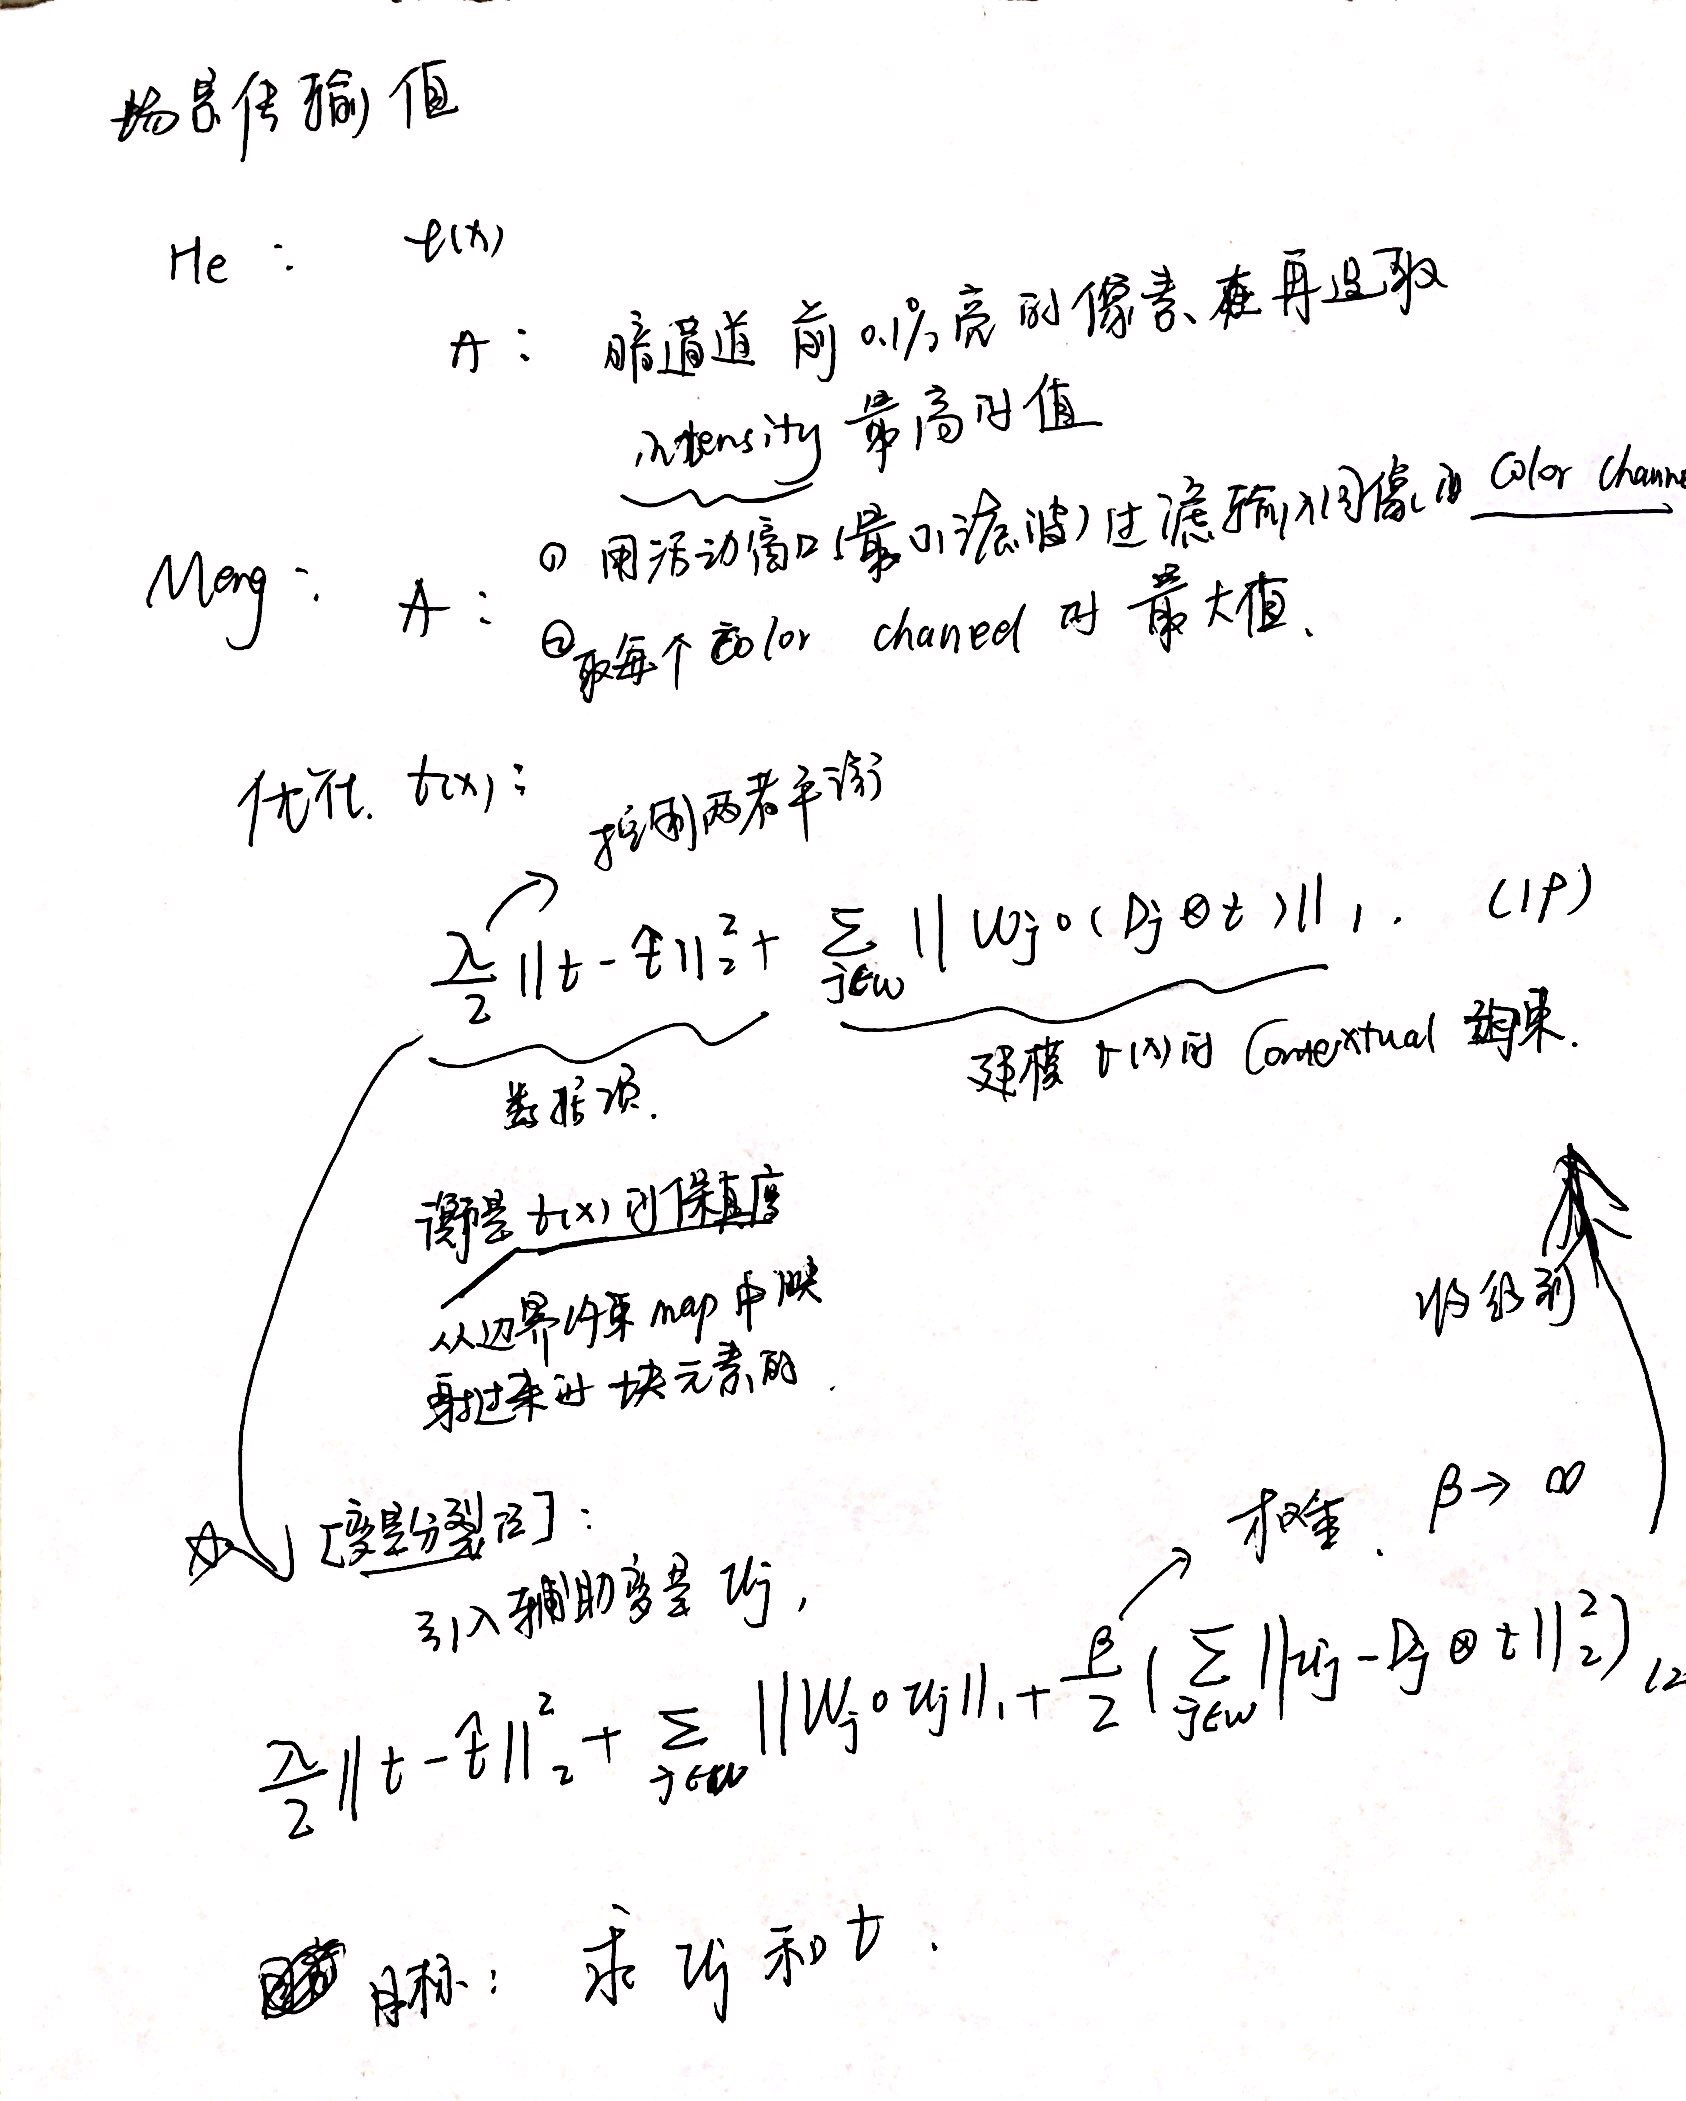 场景传输值
He: t(x)
A: 暗通道 前 0.1% 亮的像素、在再这取
intensity 最高的值
Meng: A: ① 用活动窗口(最小滤波)过滤输入图像的 Color Channe
② 取每个 color channel 的最大值.
优化 t(x):
控制两者平衡
λ/2 ||t - t̂||₂² + Σ_{j∈w} ||Wj∘(Dj⊗t)||₁. (19)
数据项.
建模 t(x) 的 Contextual 约束.
衡量 t(x) 的保真度
从边界约束 map 中映
射过来的 块元素的.
收敛到
☆ [变量分裂法]:
权重. β→∞
引入辅助变量 uj,
λ/2 ||t - t̂||₂² + Σ_{j∈w} ||Wj∘uj||₁ + β/2 (Σ_{j∈w} ||uj - Dj⊗t||₂²) (2
目标: 求 uj 和 t.